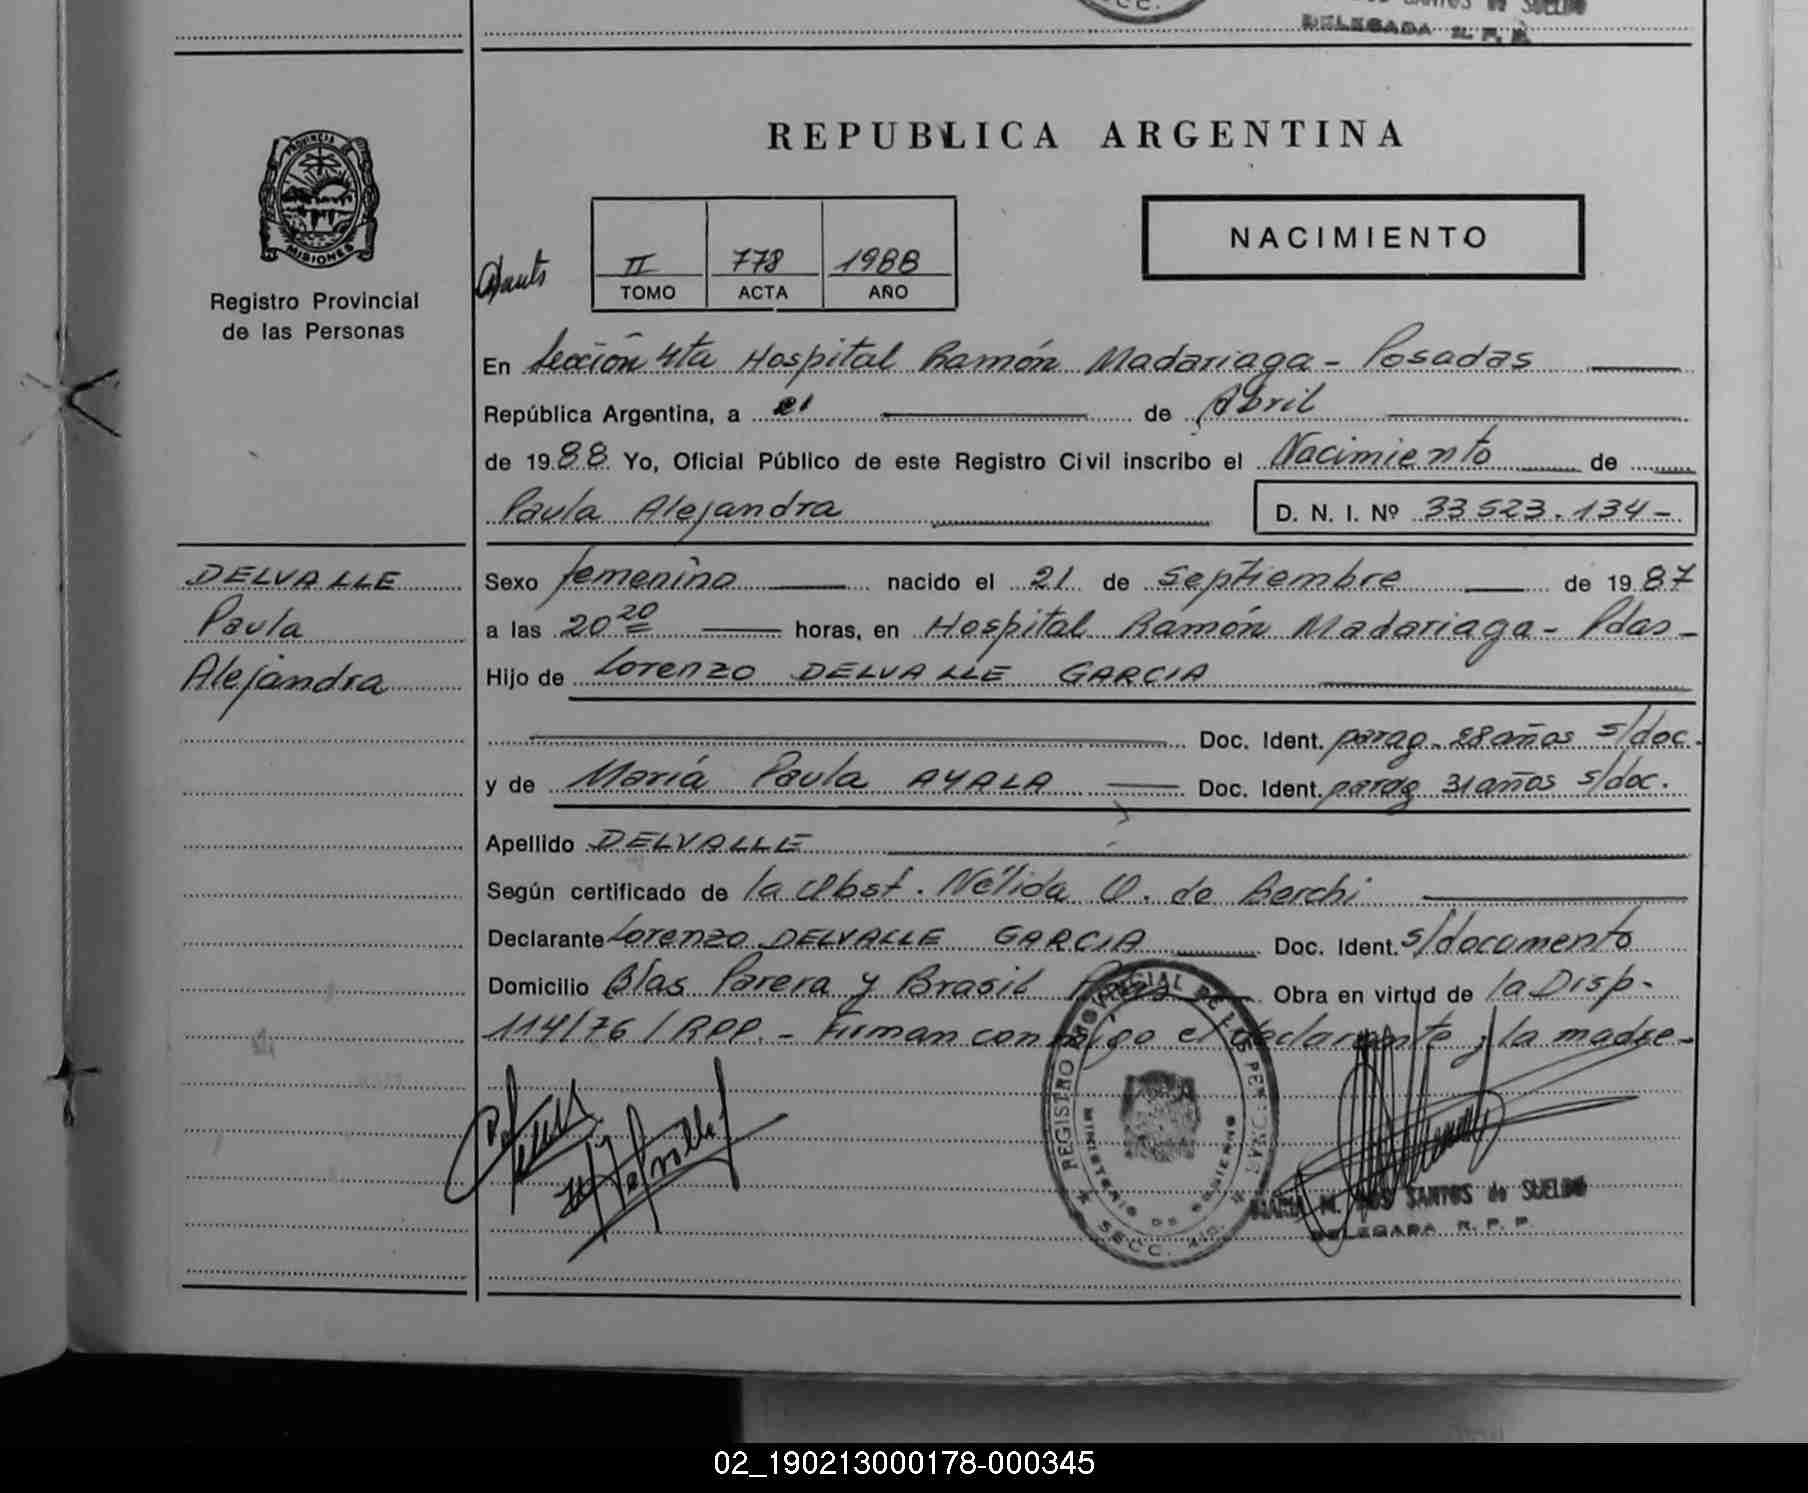 DELEGADA R. P. P.
REPUBLICA ARGENTINA
PROVINCIA DE
MISIONES
Registro Provincial
de las Personas
NACIMIENTO
II 778 1988
TOMO ACTA AÑO
En Sección 4ta Hospital Ramón Madariaga - Posadas
República Argentina, a 21 de Abril
de 1988 Yo, Oficial Público de este Registro Civil inscribo el Nacimiento de
Paula Alejandra D. N. I. Nº 33.523.134-
DELVALLE
Paula
Alejandra
Sexo femenino nacido el 21 de Septiembre de 1987
a las 20 20 horas, en Hospital Ramón Madariaga - Pdas-
Hijo de Lorenzo DELVALLE GARCIA
Doc. Ident. parag. 28 años s/doc.
y de María Paula AYALA Doc. Ident. parag 31 años s/doc.
Apellido DELVALLE
Según certificado de la Obst. Nélida O. de Berchi
Declarante Lorenzo DELVALLE GARCIA Doc. Ident. s/documento
Domicilio Blas Parera y Brasil Obra en virtud de la Disp.
114/76/RPP.- Firman conmigo el declarante y la madre-
REGISTRO PROVINCIAL DE LAS PERSONAS
MINISTERIO DE GOBIERNO
SECC. 4ta.
MARIA M. DOS SANTOS de SUELDO
DELEGADA R. P. P.
02_190213000178-000345